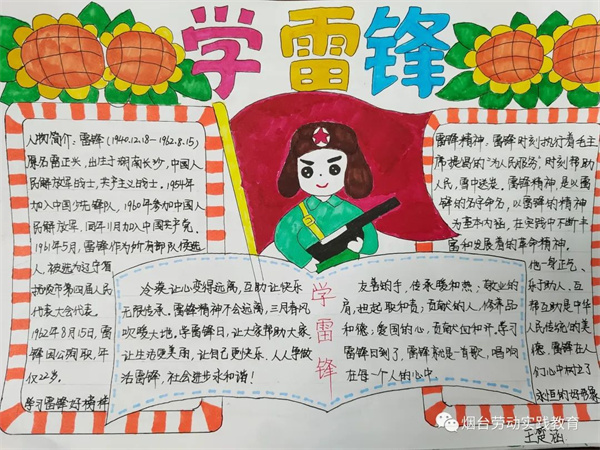 学雷锋
人物简介：雷锋（1940.12.18—1962.8.15）
原名雷正兴，出生于湖南长沙，中国人
民解放军战士，共产主义战士。1954年
加入中国少先队，1960年参加中国人
民解放军，同年11月加入中国共产党。
1961年5月，雷锋作为所有部队候选
人，被选为辽宁省
抚顺市第四届人民
代表大会代表。
1962年8月15日，雷
锋因公殉职，年
仅22岁。
学习雷锋好榜样
冷漠让心变得遥远，互助让快乐
无限传承。雷锋精神不会远离，三月春风
吹暖大地。学雷锋日，让大家帮助大家，
让生活更美丽，让自己更快乐，人人学做
活雷锋，社会进步永和谐！
学雷锋
友善的手，传承暖和热；敬业的
肩，担起取和责；贡献的人，修养品
和德；爱国的心，贡献血和汗。学习
雷锋日到了，雷锋就是一首歌，唱响
在每个人的心中。
雷锋精神：雷锋时刻执行着毛主
席提倡的“为人民服务”，时刻帮助
人民，雪中送炭。雷锋精神，是以雷
锋的名字命名，以雷锋的精神
为基本内涵，在实践中不断丰
富和发展着的革命精神。
他一身正气、
乐于助人，互
帮互助是中华
人民传统的美
德，雷锋在人
们心中树立了
永恒的好形象
王蓂涵
烟台劳动实践教育